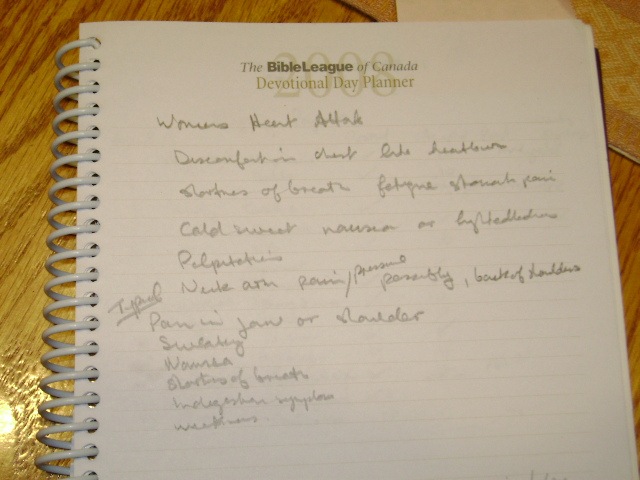 2008
The BibleLeague of Canada
Devotional Day Planner
Womens Heart Attak
Discomfort in chest like heatburn
shortnes of breath fatigue stomach pain
Cold sweat nausea or lightedledness
Palpitations
Neck arm pain/pressure possibly, back of shoulders
Typical
Pain in jaw or shoulder
Sweaty
Nausea
shortnes of breath
Indigestion symptoms
weakness.